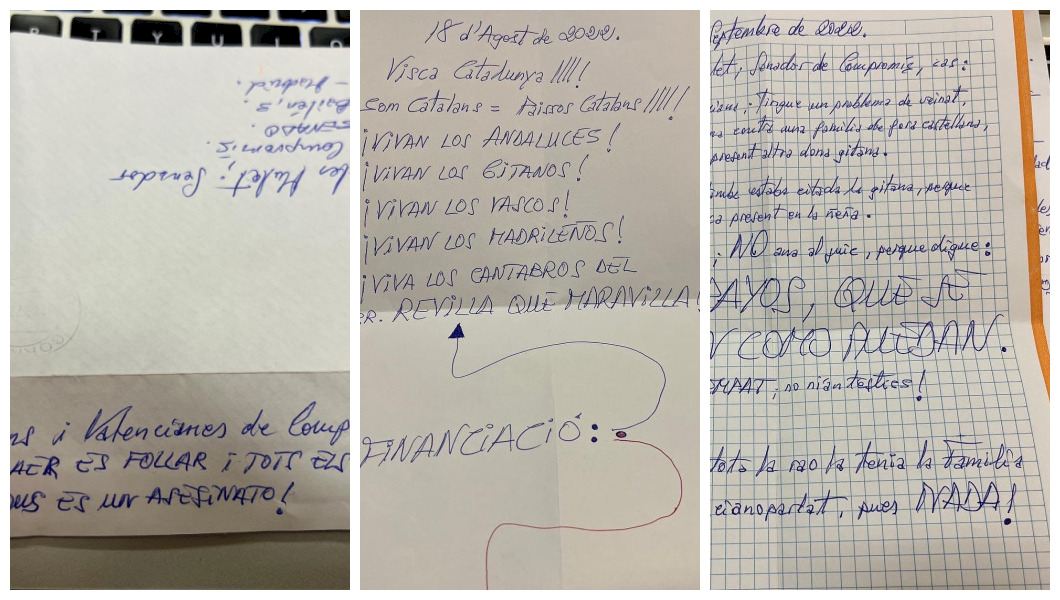 Senador
Compromís.
SENADO.
Bailén, 3.
- Madrid.
ns i Valencianes de Comp
AER ES FOLLAR i TOTS ELS
ONS ES UN ASESiNATO!
18 d'Agost de 2022.
Visca Catalunya !!!!
Som Catalans = Països Catalans !!!!!
¡ViVAN LOS ANDALUCES!
¡ViVAN LOS GiTANOS!
¡ViVAN LOS VASCOS!
¡ViVAN LOS MADRiLEÑOS!
¡ViVA LOS CANTABROS DEL
REViLLA QUE MARAViLLA!
FiNANCiACiÓ:
Septembre de 2022.
let, Senador de Compromís, cas:
Tingue un problema de veinat,
contra una familia de fora castellana,
present altra dona gitana.
també estaba citada la gitana, perque
present en la
NO ana al juic, perque digue:
PAYOS, QUE SE
COMO PUEDAN.
no nian testics!
tota la rao la tenia la familia
cianoparlat, pues NADA!